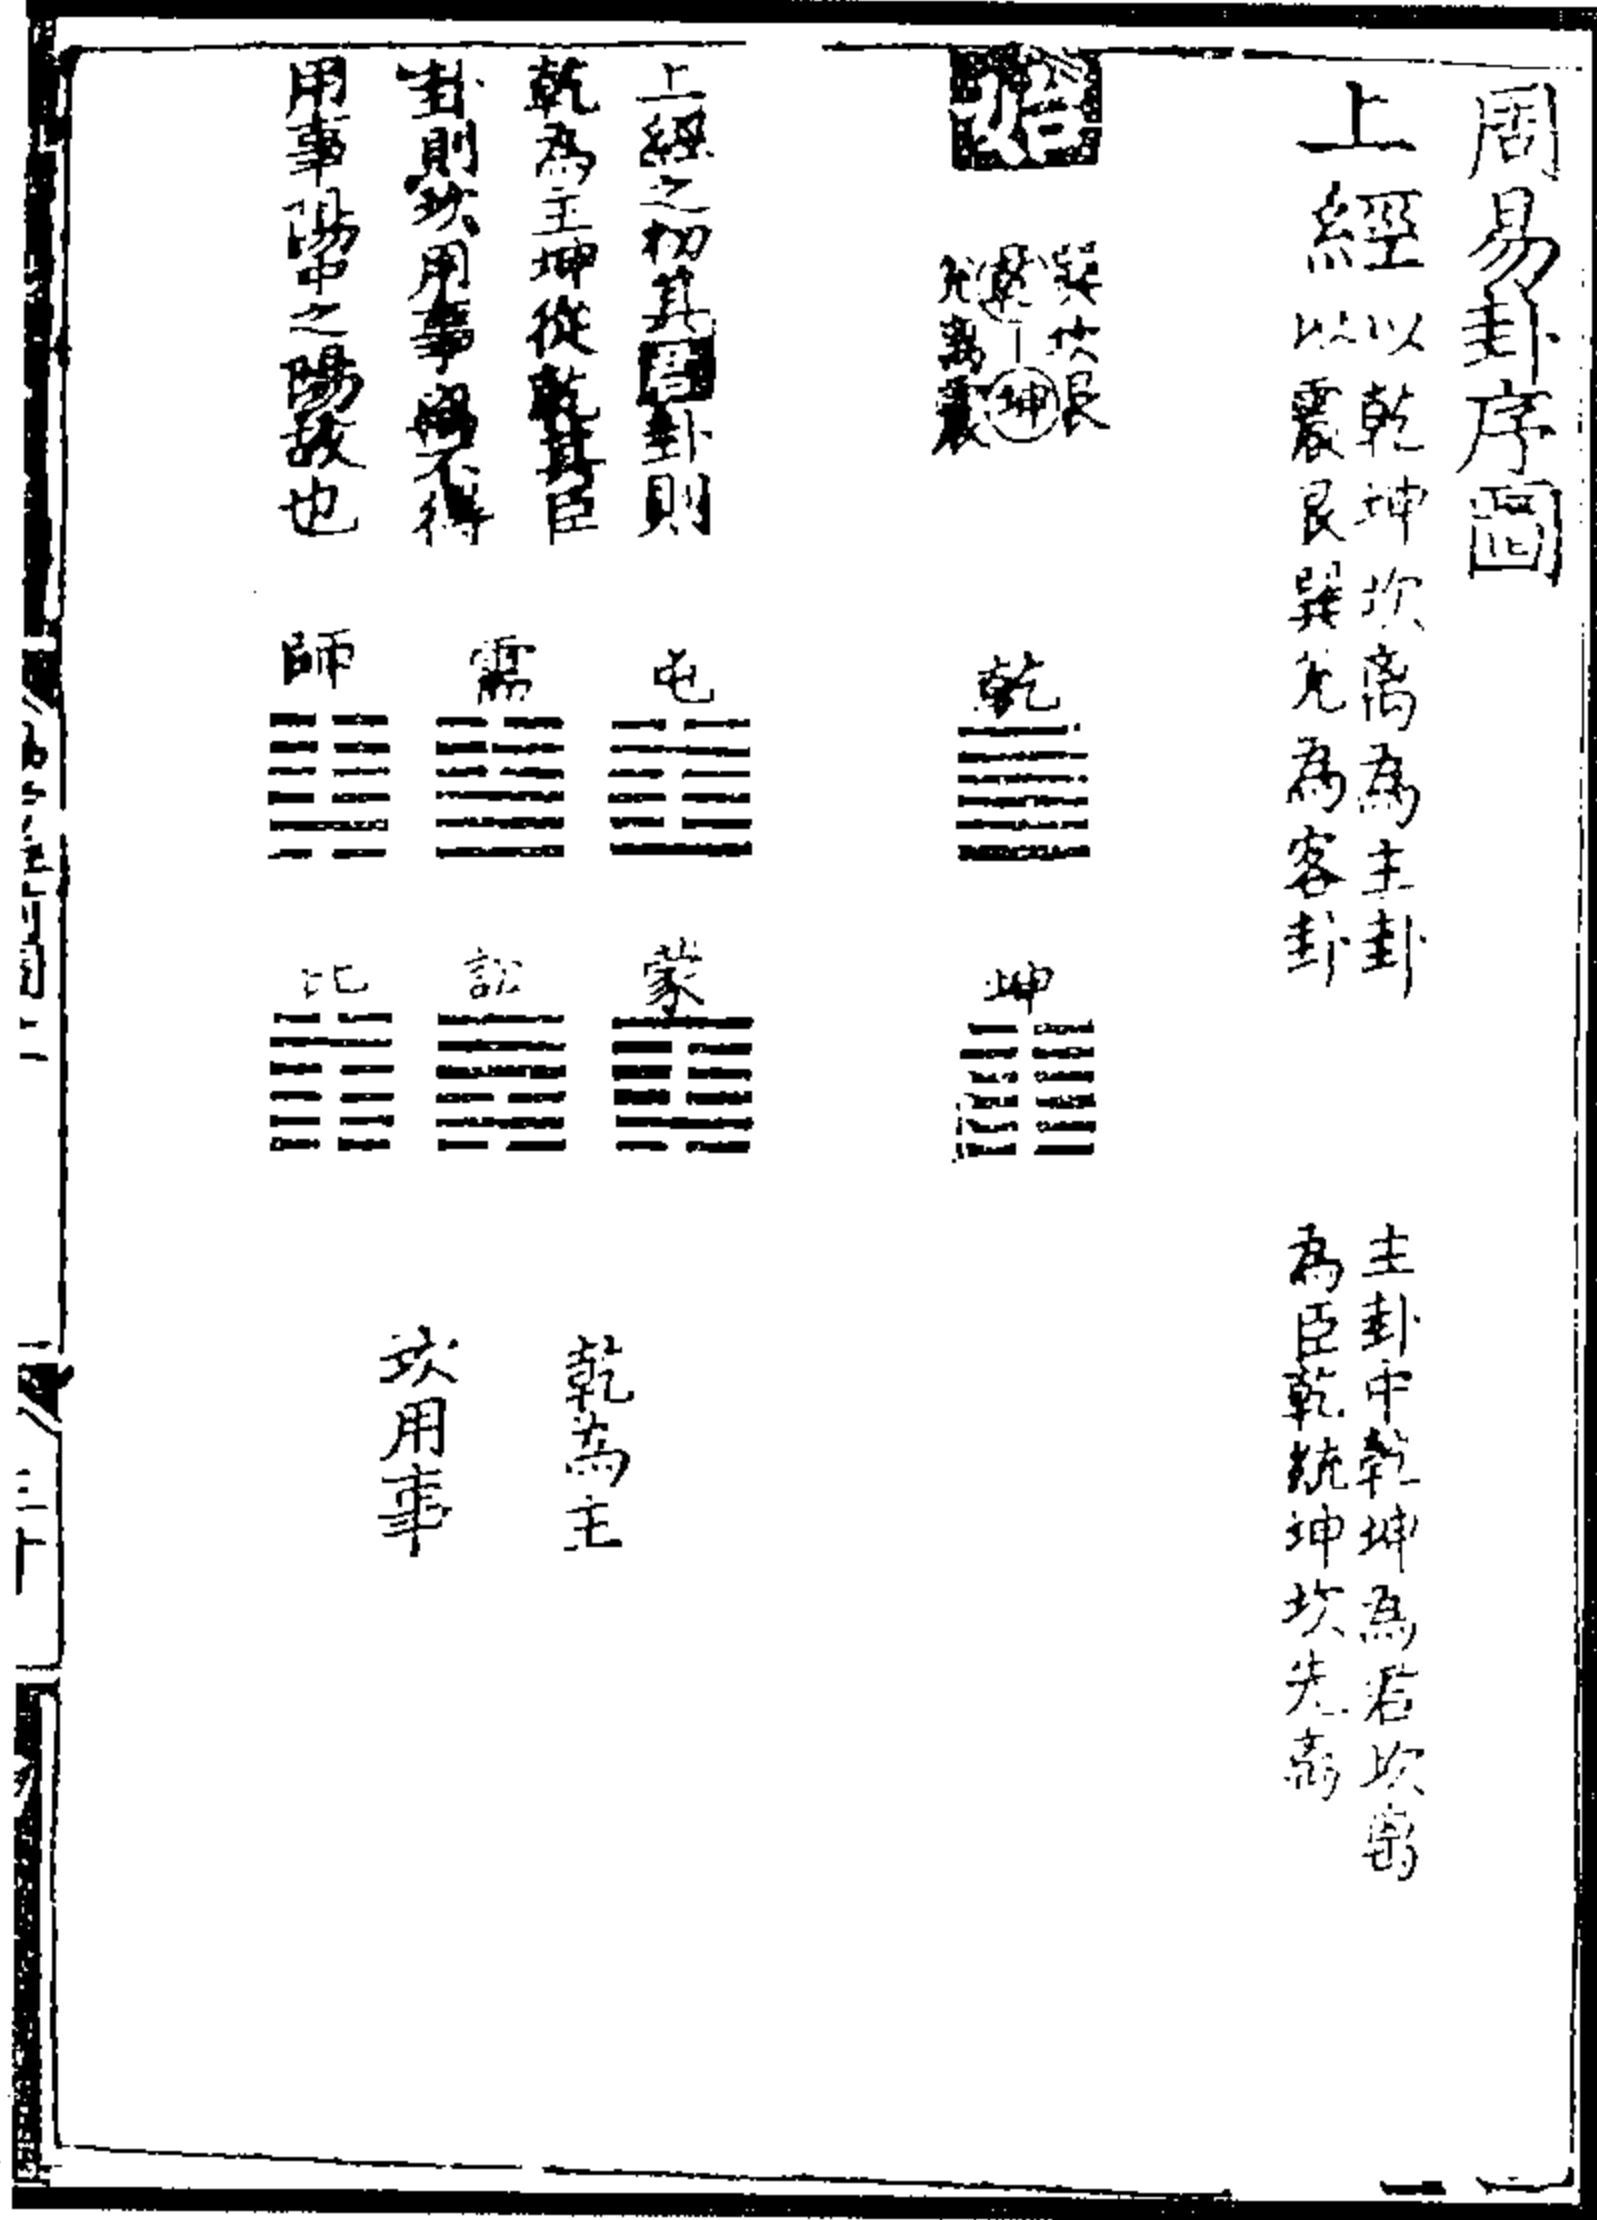 周易卦序圖
上經
以乾坤坎离為主卦
以震艮巽兌為客卦
主卦中乾坤為君坎离
為臣乾統坤坎先离
始
巽坎艮
乾 坤
兌离震
乾
坤
上經之初其君卦則
乾為主坤從乾其臣
卦則坎用事离不得
用事陽中之陽故也
屯
蒙
需
訟
師
比
乾為主
坎用事